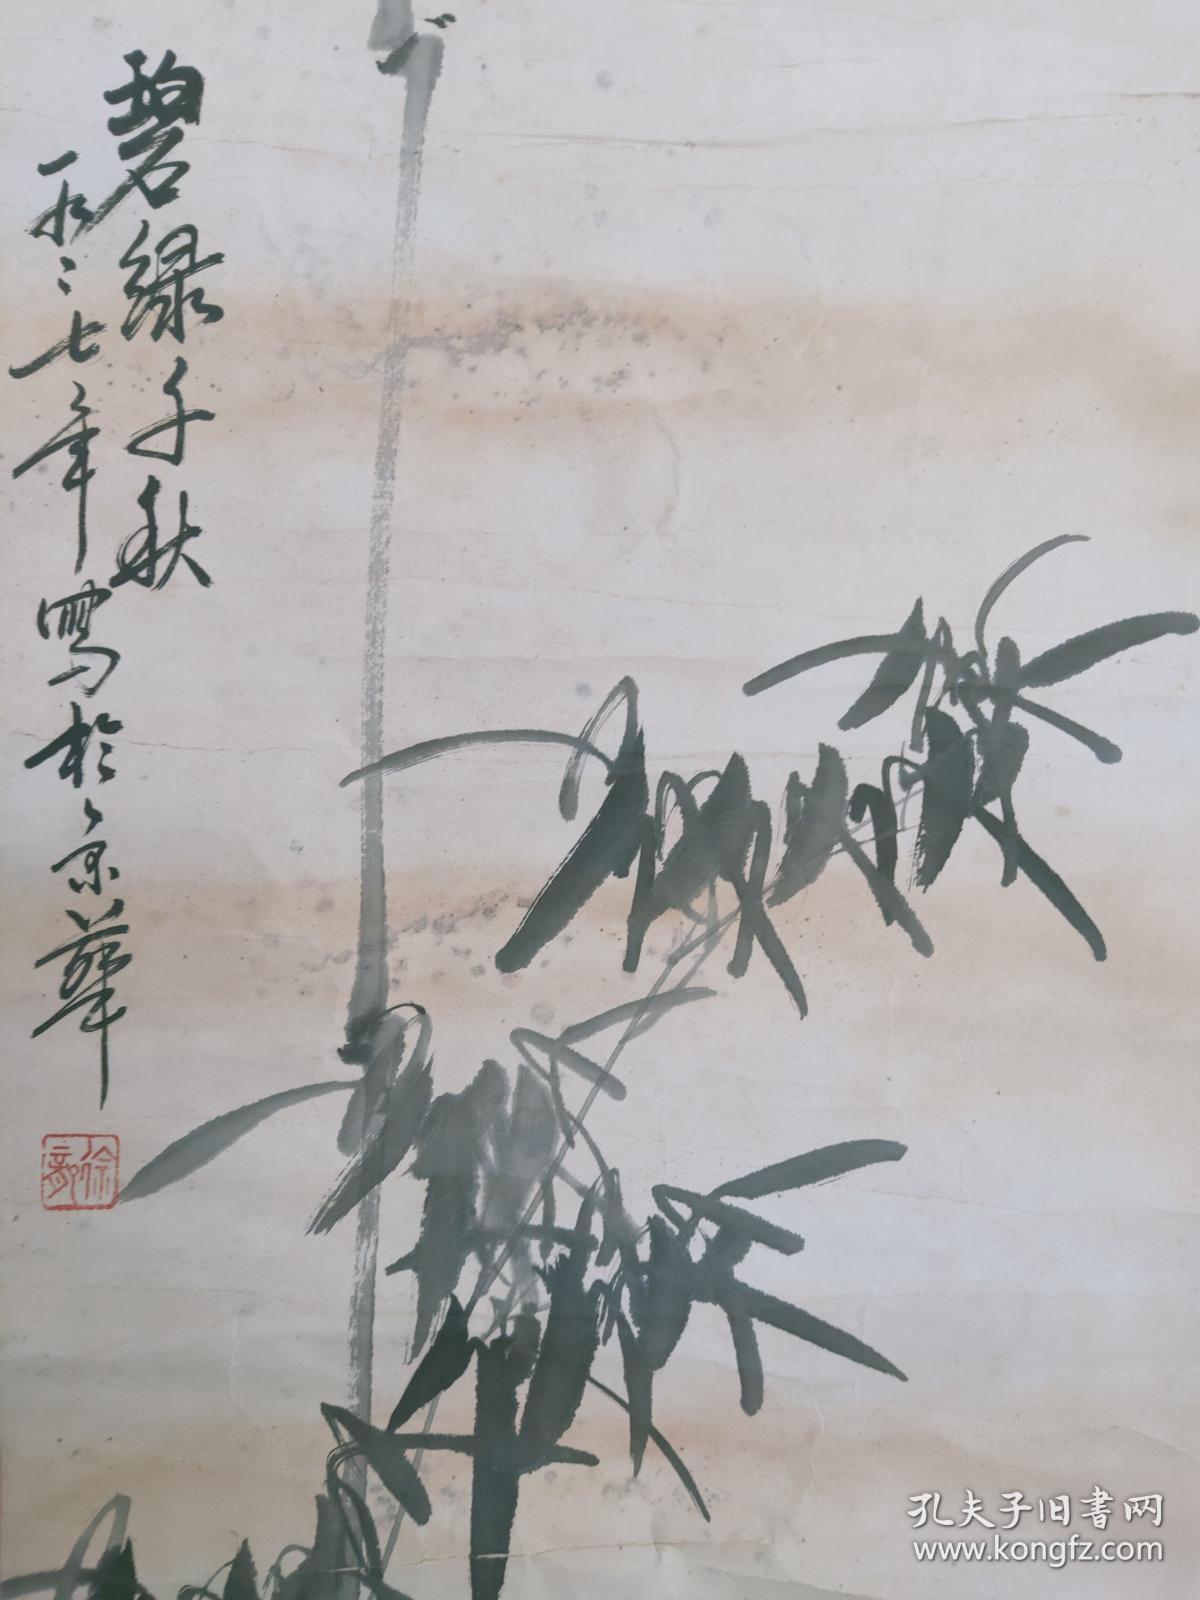 碧綠千秋
一九二七年寫於京華
孔夫子旧書网
www.kongfz.com